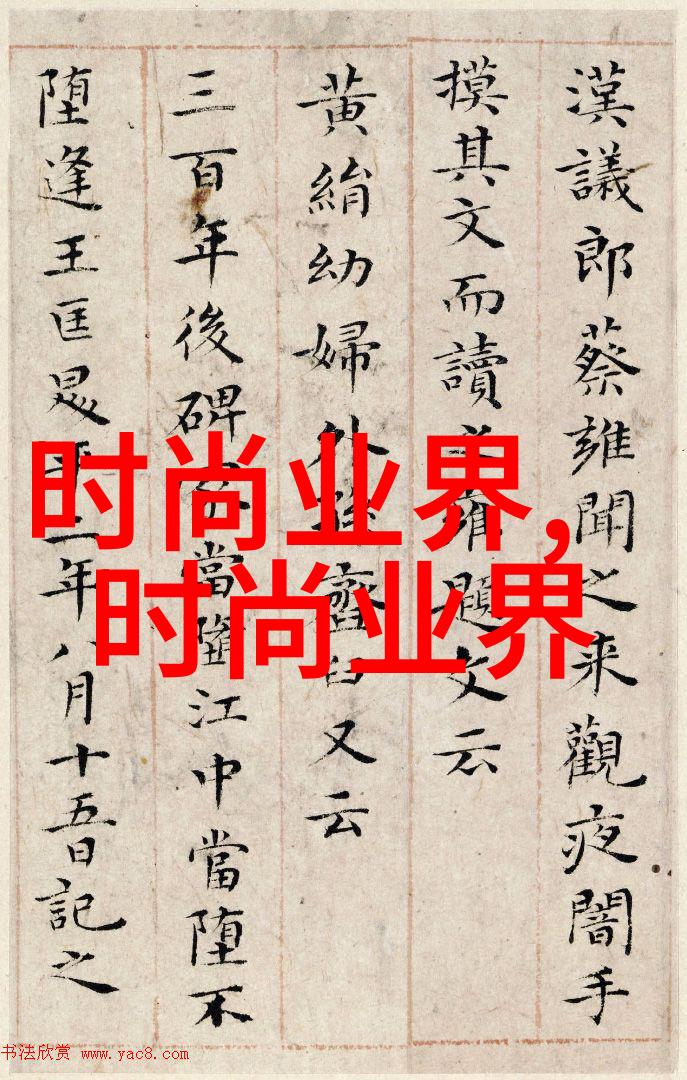 漢議郎蔡雍聞之来觀夜闇手
摸其文而讀之雍題文云
黄絹幼婦外孫臼又云
三百年後碑當墮江中當堕不
堕逢王匡平二年八月十五日記之
时尚业界,
时尚业界
书法欣赏 www.yac8.com